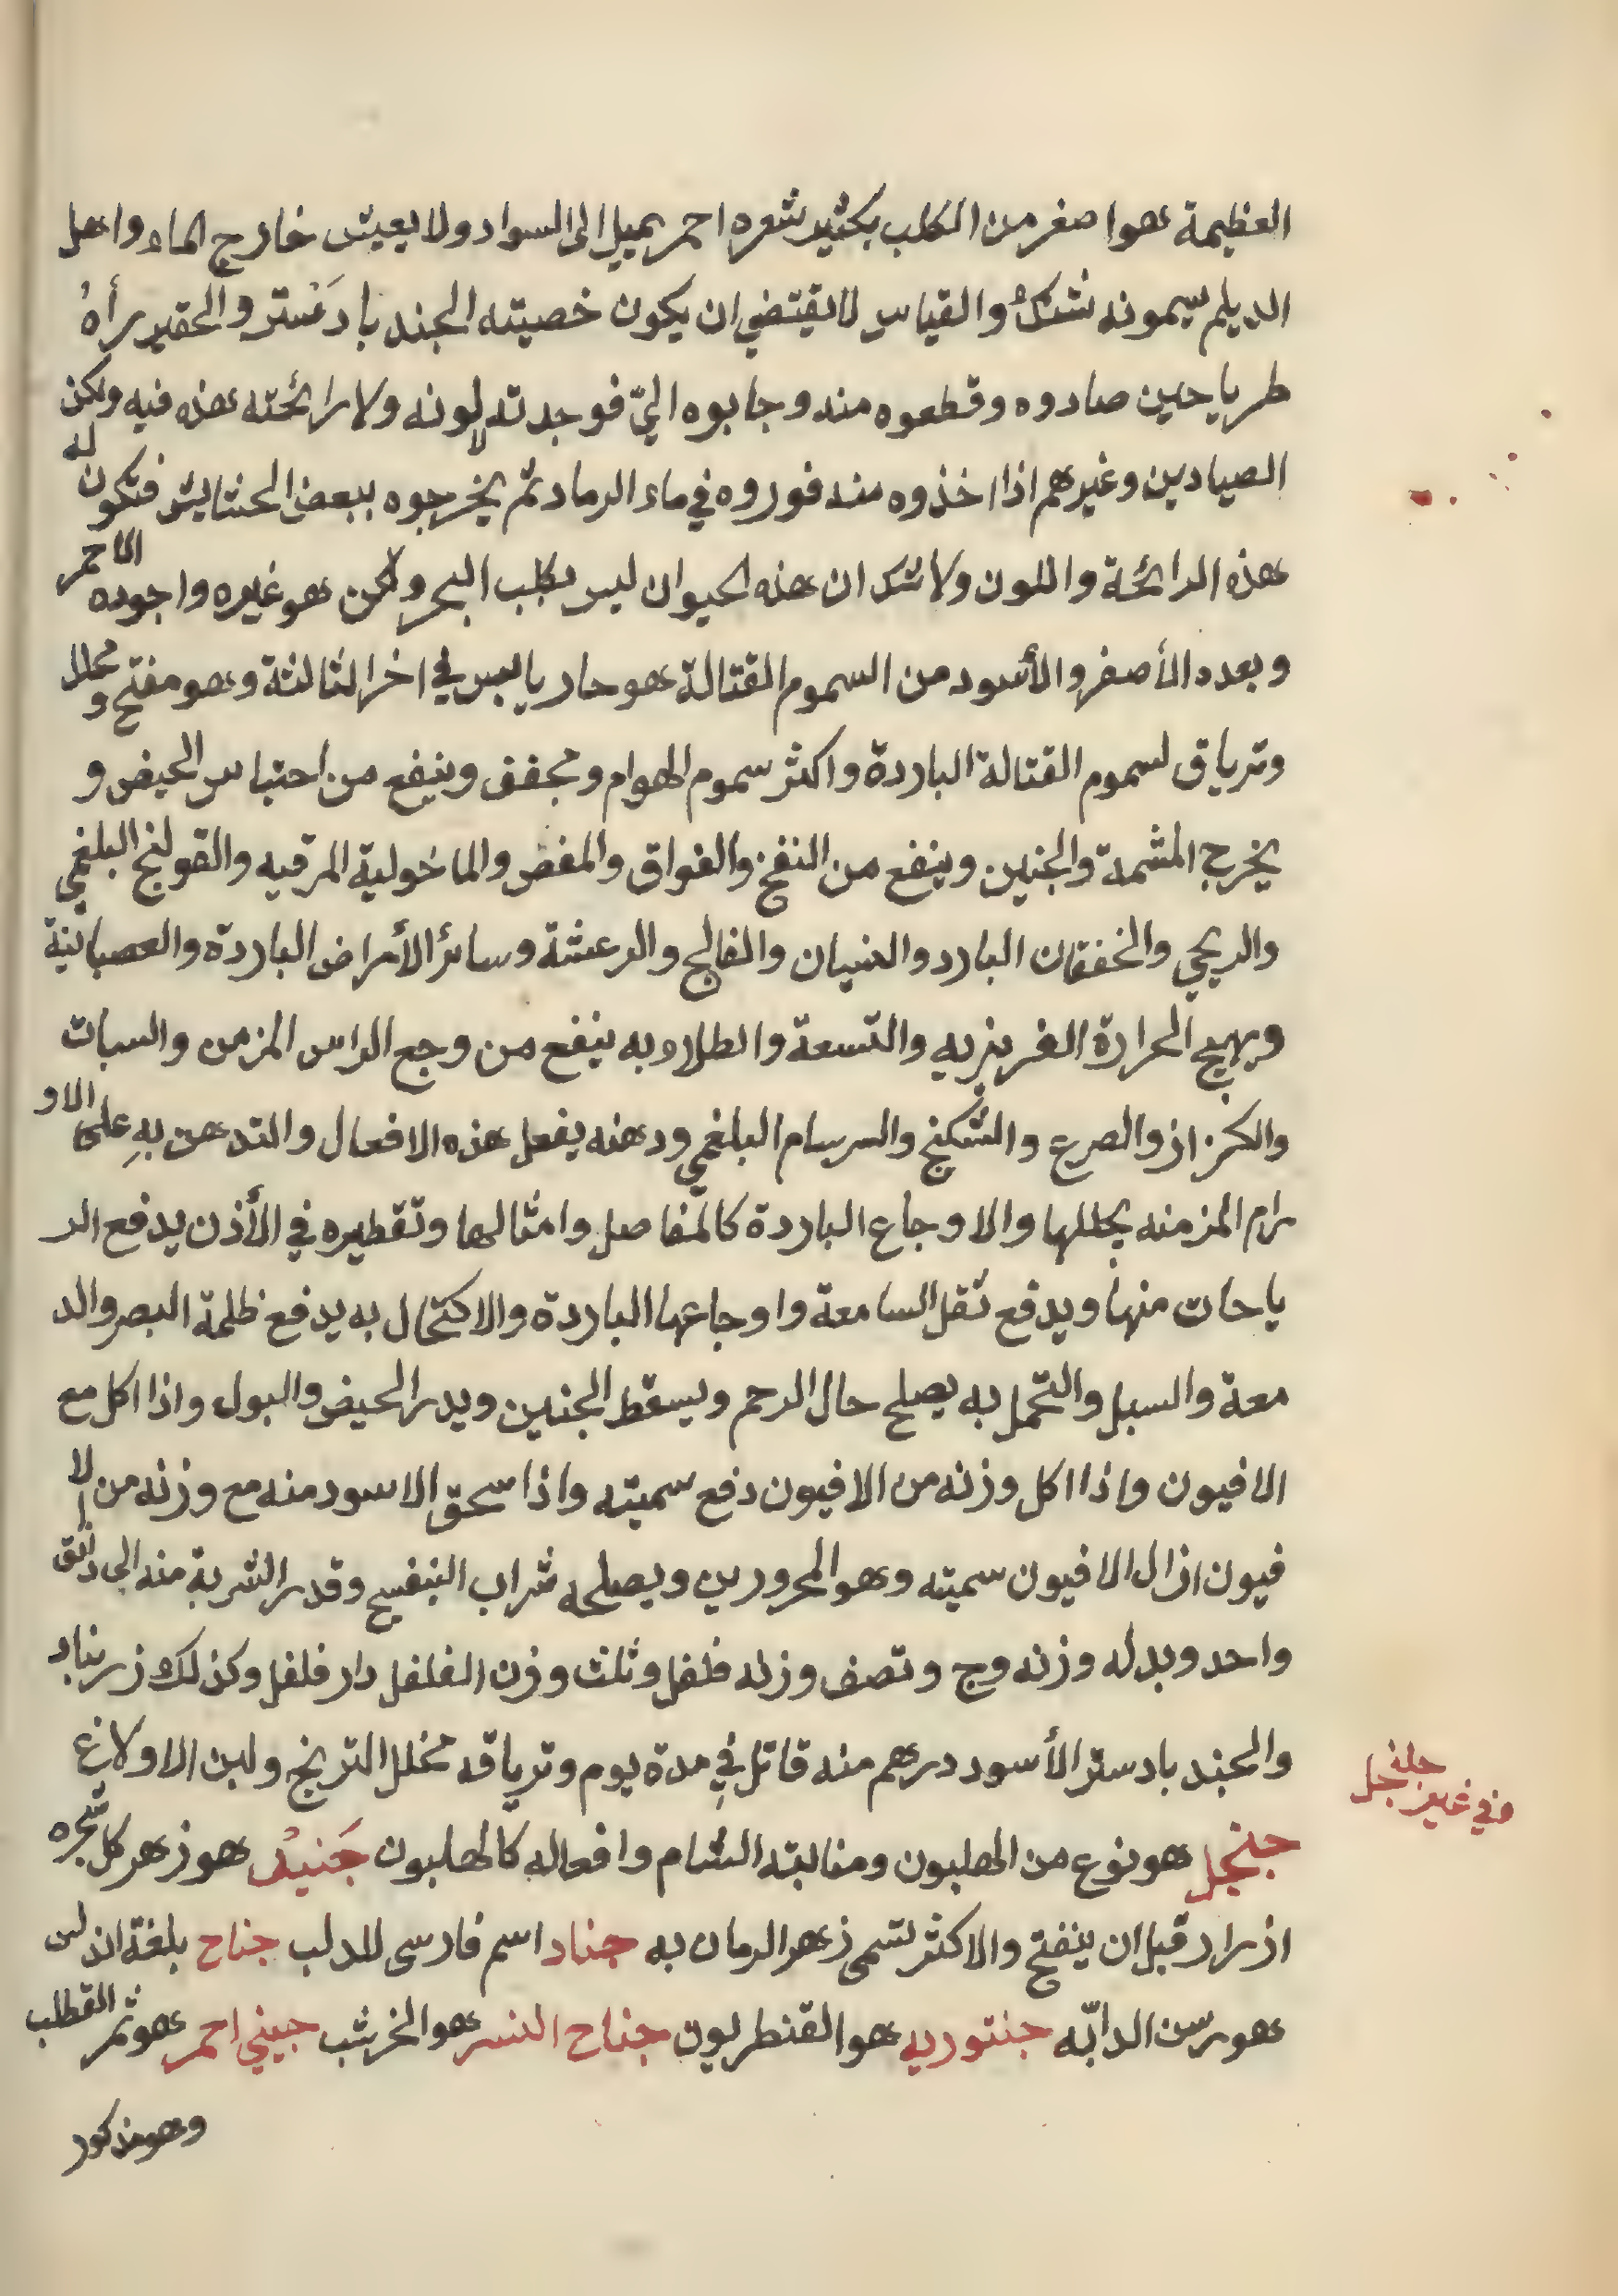 العظيمة هو اصغر من الكلب بكثير شعره احمر يميل الى السواد ولا يعيش خارج الماء واهل
الديلم يسمونه شنك والقياس لا يقتضي ان يكون خصيته الجند بادَسْتر والحقير رأهُ
طريا حين صادوه وقطعوه منه وجابوه اليّ فوجدته لا لونه ولا رائحته هذه فيه ولكن
الصيادين وغيرهم اذا اخذوه منه فوروه في ماء الرماد ثم يخرجوه ببعض الحشايش فتكون له
هذه الرائحة واللون ولا شك ان هذه الحيوان ليس بكلب البحر ولاكن هو غيره واجوده الاحمر
وبعده الأصفر والأسود من السموم القتالة هو حار يابس في اخر الثالثة وهو مفتح و محلل
وترياق لسموم القتالة الباردة واكثر سموم الهوام ومجفف وينفع من احتباس الحيض و
يخرج المشمة والجنين وينفع من النفخ والفواق والمغص والماخولية المرقيه والقولنج البلغمي
والريحي والخفقان البارد والنسيان والفالج والرعشة وسائر الأمراض الباردة والعصبانية
ويهيج الحرارة الغريزيه والتسعة والطلاء به ينفع من وجع الراس المزمن والسبات
والكزاز والصرع والتشكنج والسرسام البلغمي ودهنه يفعل هذه الافعال والتدهن بهِ على الاو
رام المزمنه يحللها والاوجاع الباردة كالمفاصل وامثالها وتقطيره في الأذن يدفع الر
ياحات منها ويدفع ثقل السامعة واوجاعها الباردة والاكتحال به يدفع ظلمة البصر والد
معة والسبل والتحمل به يصلح حال الرحم ويسقط الجنين ويدر الحيض والبول واذا اكل مع
الافيون واذا اكل وزنه من الافيون دفع سميته واذا سحق الاسود منه مع وزنه من الا
فيون ازال الافيون سميته وهو المحرورين ويصلحه شراب البنفسج وقدر الشربة منه الى دانق
واحد وبدله وزنه وج ونصف وزنه فلفل وثلث وزن الفلفل دار فلفل وكذلك زرنباد
والجند بادستر الأسود درهم منه قاتل في مدة يوم وترياقه مخلل التريخ ولبن الاولاغ
جنجل هو نوع من الهليون ومنابته الشام وافعاله كالهليون جَنيدْ هو زهر كل شجره
ازرار قبل ان ينفتح والاكثر تسمى زهر الرمان به جنار اسم فارسى للدلب جناح بلغة اندلس
هو رسن الدابّه جنتوريه هو القنطريون جناح النسر هو الخرشب جيني احمر هو ثمر القطلب
وهو مذكور
جلنجل
في غير